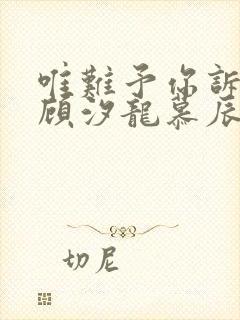 唯難予你訴
顧汐龍慕辰
切尼